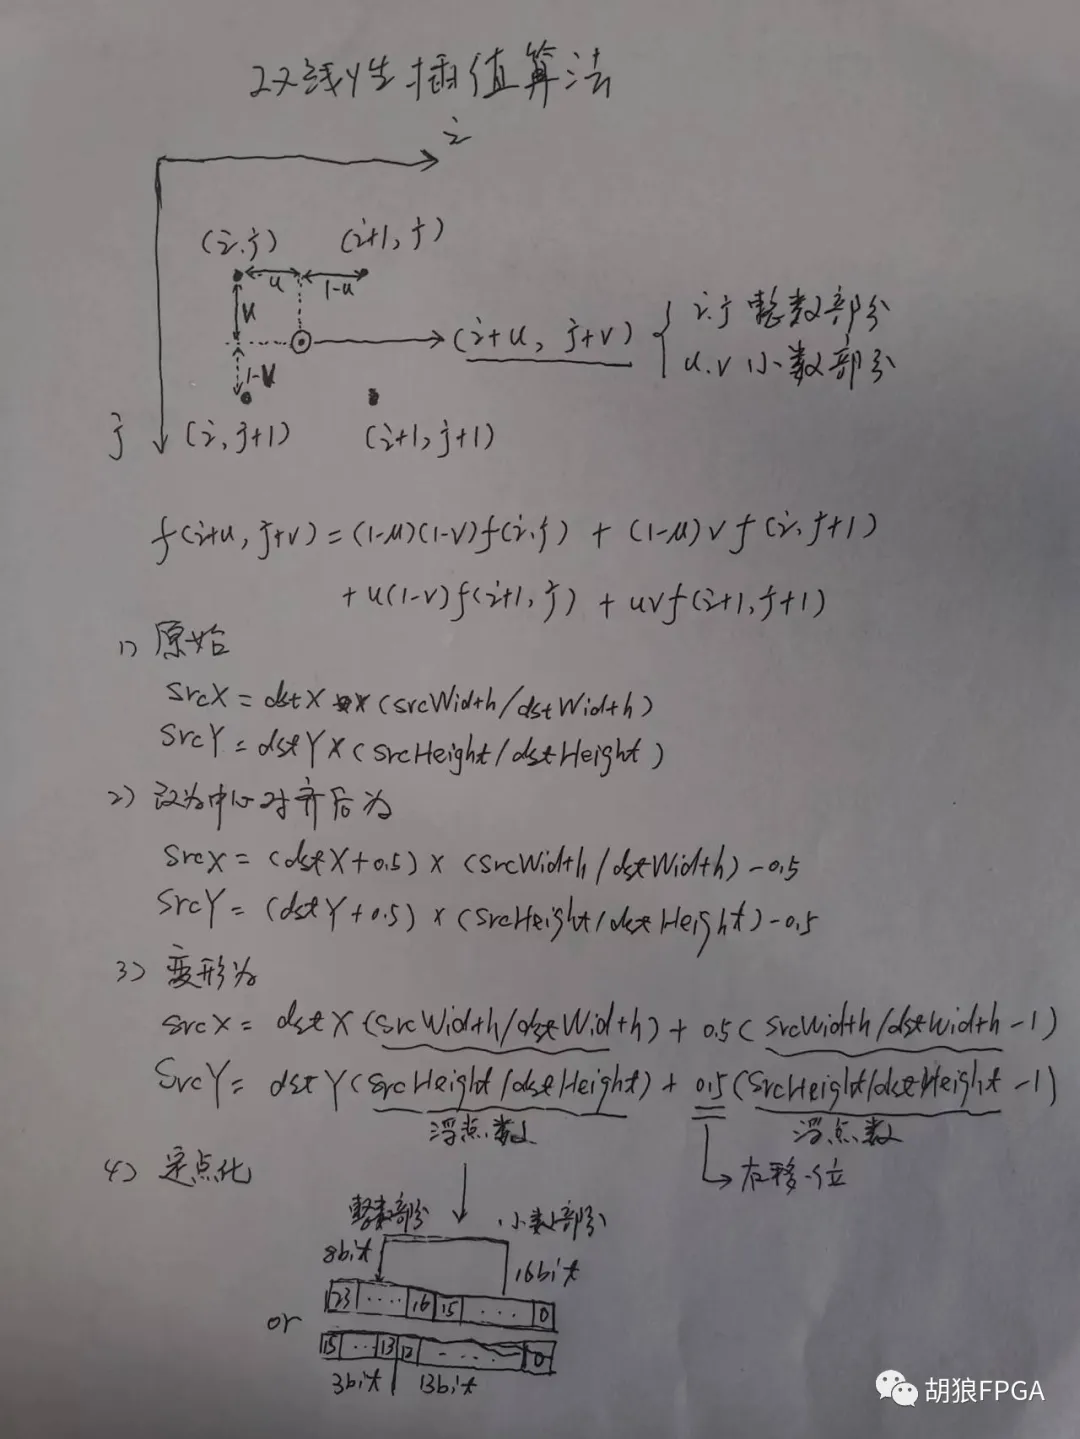 双线性插值算法
i
(i,j) (i+1,j)
u 1-u
u
(i+u, j+v) { i.j 整数部分
u.v 小数部分
1-v
j (i,j+1) (i+1,j+1)
f(i+u, j+v) = (1-u)(1-v)f(i,j) + (1-u)v f(i,j+1)
+ u(1-v)f(i+1,j) + uvf(i+1,j+1)
1) 原始
srcX = dstX × (srcWidth/dstWidth)
srcY = dstY × (srcHeight/dstHeight)
2) 改为中心对齐后为
srcX = (dstX+0.5) × (srcWidth/dstWidth) - 0.5
srcY = (dstY+0.5) × (srcHeight/dstHeight) - 0.5
3) 变形为
srcX = dstX (srcWidth/dstWidth) + 0.5 (srcWidth/dstWidth - 1)
SrcY = dstY (srcHeight/dstHeight) + 0.5 (srcHeight/dstHeight - 1)
浮点数 浮点数
4) 定点化 右移一位
整数部分 小数部分
8bit 16bit
23 .... 16 15 ... 0
or
15 ... 13 12 .... 0
3bit 13bit
胡狼FPGA